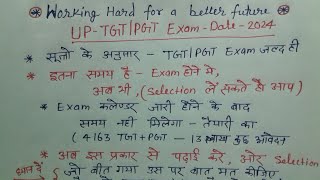 Working Hard for a better future
UP-TGT/PGT Exam-Date-2024
* सूत्रों के अनुसार - TGT/PGT Exam जल्द ही
* इतना समय है - Exam होने में,
अब भी, (Selection ले सकते हो आप)
* Exam कलेण्डर जारी होने के बाद
समय नहीं मिलेगा - तैयारी का
(4163 TGT+PGT - 13 लाख कुछ आवेदन
* अब इस प्रकार से पढ़ाई करे, और Selection
जो बीत गया उस पर बात मत कीजिए